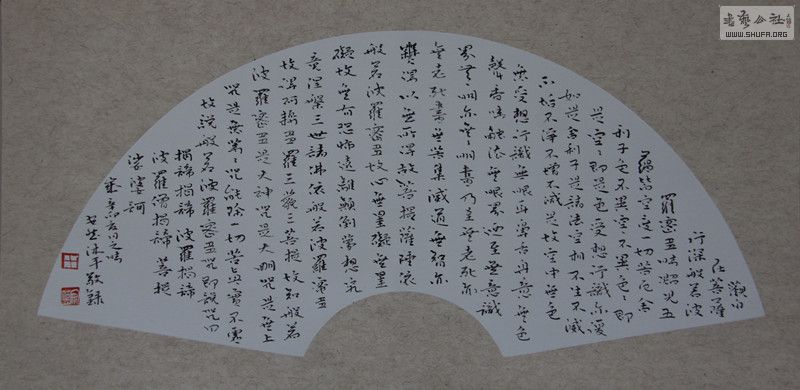 觀自
在菩薩
行深般若波
羅蜜多時照見五
蘊皆空度一切苦厄舍
利子色不異空〻不異色〻即
是空〻即是色受想行識亦復
如是舍利子是諸法空相不生不滅
不垢不淨不增不減是故空中無色
無受想行識無眼耳鼻舌身意無色
聲香味觸法無眼界乃至無意識
界無〻明亦無〻明盡乃至無老死亦
無老死盡無苦集滅道無智亦
無得以無所得故菩提薩埵依
般若波羅蜜多故心無罣礙無罣
礙故無有恐怖遠離顛倒夢想究
竟涅槃三世諸佛依般若波羅蜜多
故得阿耨多羅三藐三菩提故知般若
波羅蜜多是大神咒是大明咒是無上
咒是無等〻咒能除一切苦真實不虛
故說般若波羅蜜多咒即說咒曰
揭諦揭諦波羅揭諦
波羅僧揭諦菩提
娑婆訶
歲辛卯
沐手敬錄
书艺公社
WWW.SHUFA.ORG